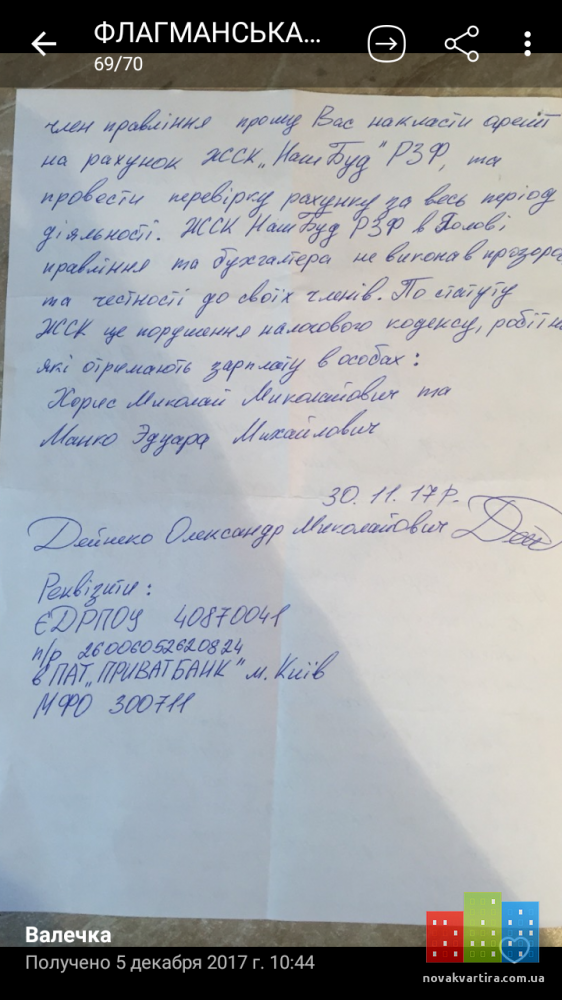 ФЛАГМАНСЬКА...
69/70
член правління прошу Вас накласти арешт
на рахунок ЖСК „Наш Буд" РЗФ, та
провести перевірку рахунку за весь період
діяльності. ЖСК Наш Буд РЗФ в Голові
правління та бухгалтера не виконав прозоро
та честності до своїх членів. По статуту
ЖСК це порушення налогового кодексу, робітн
які отримають зарплату в особах:
Хорис Миколай Миколайович та
Манко Эдуард Михайлович
30.11.17р.
Дейнеко Олександр Миколайович
Реквізити:
ЄДРПОУ 40870041
п/р 26006052620824
в ПАТ „ПРИВАТБАНК" м. Київ
МФО 300711
Валечка
Получено 5 декабря 2017 г. 10:44
novakvartira.com.ua